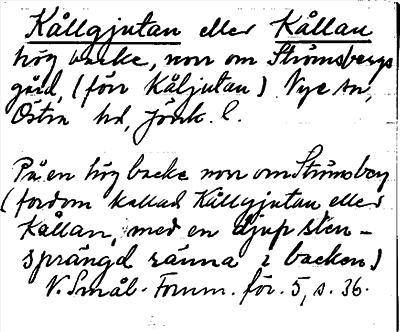 Kållgjutan eller Kållan
hög backe, norr om Strömsbergs
gård, (förr Kåljutan) Nye sn,
Östra hd, Jönk. l.
På en hög backe norr om Strömsberg
(fordom kallad Kållgjutan eller
Kållan, med en djup sten-
sprängd ränna i backen)
N. Smål. Fornm. för. 5, s. 36.